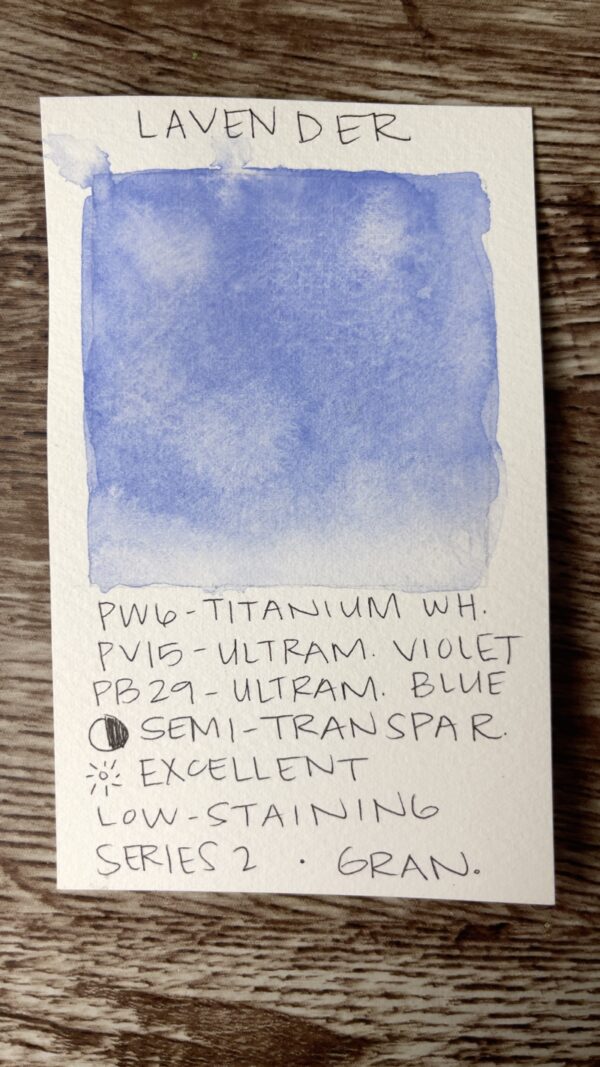 LAVENDER
PW6-TITANIUM WH.
PV15-ULTRAM. VIOLET
PB29-ULTRAM. BLUE
SEMI-TRANSPAR.
EXCELLENT
LOW-STAINING
SERIES 2 · GRAN.